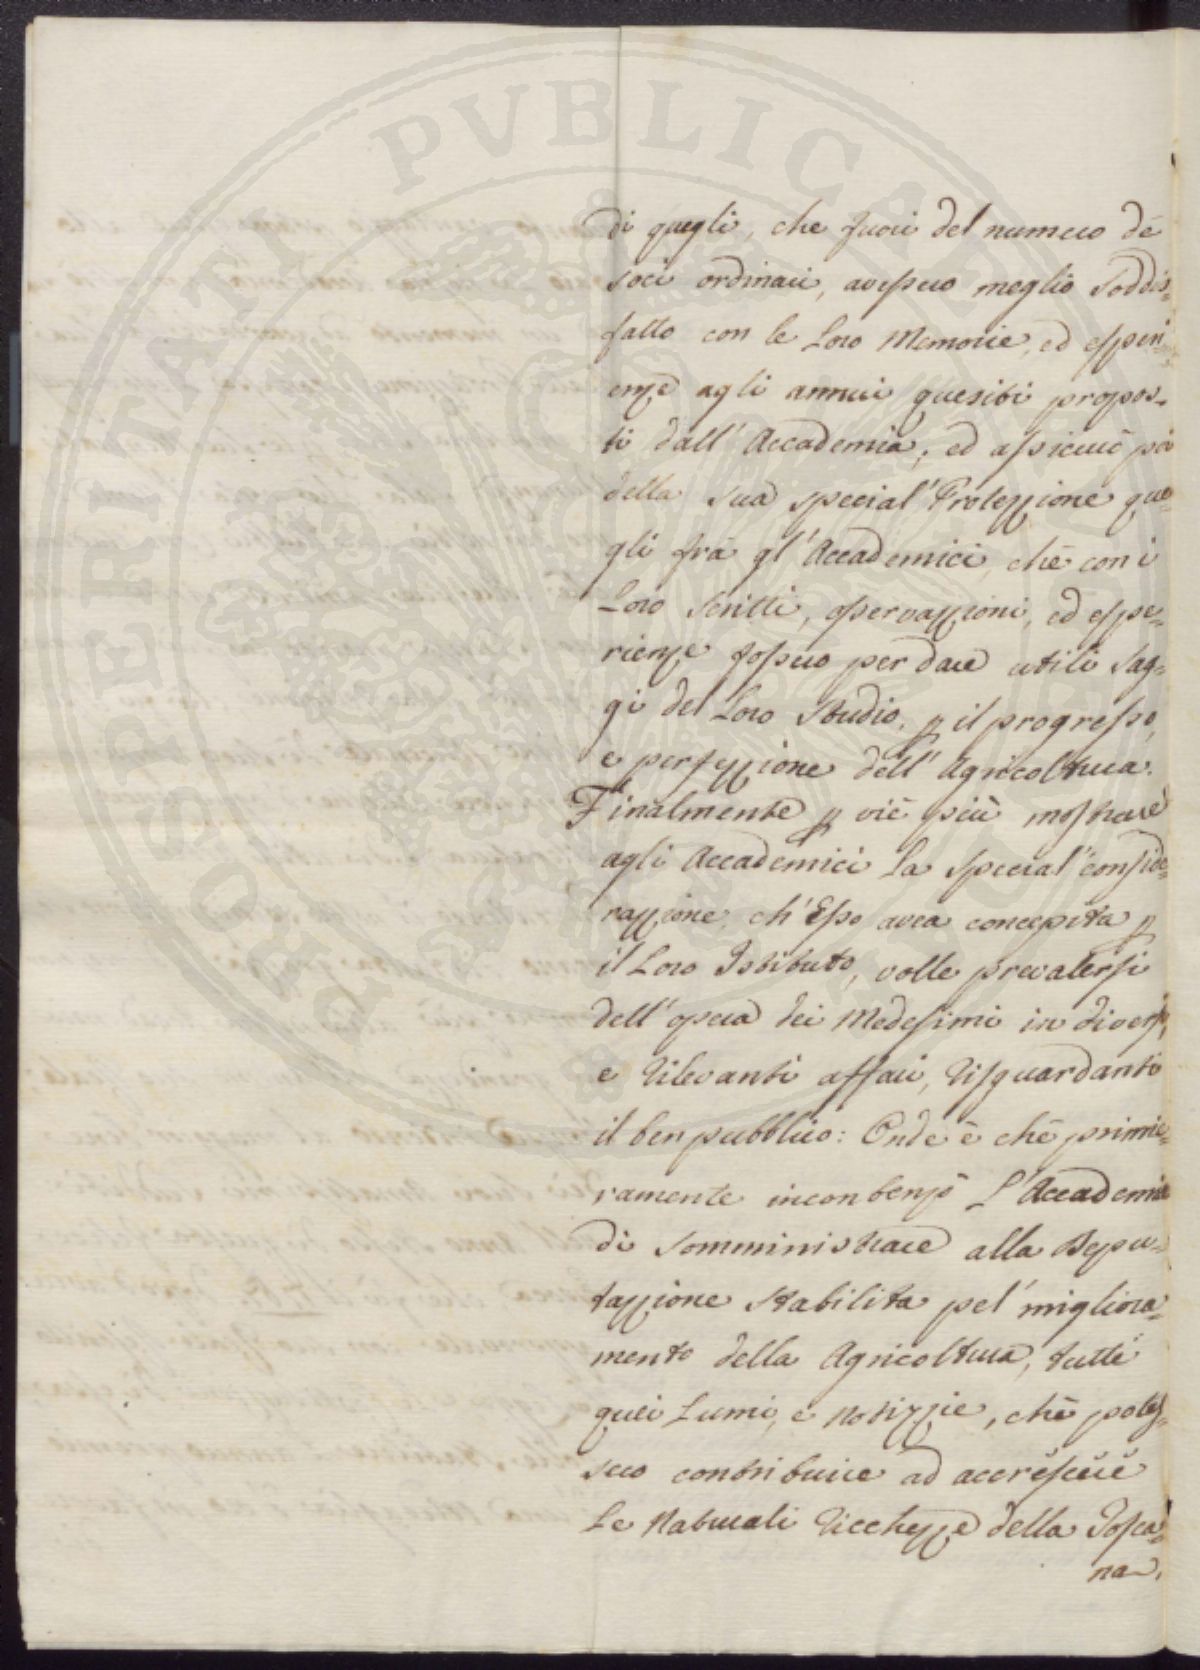 PROSPERITATI PVBLICAE
di quegli, che fuori del numero de
soci ordinari, avessero meglio soddis-
fatto con le Loro Memorie, ed esperi
enze agli annui quesiti propos-
ti dall' Accademia; ed assicurò poi
della sua special' Protezzione que-
gli frà gl' Accademici, che con i
Loro scritti, osservazzioni, ed espe-
rienze fossero per dare utili sag-
gi del Loro Studio, p il progresso,
e perfezzione dell' Agricoltura.
Finalmente p viè più mostrare
agli Accademici La special' conside-
razzione, ch' Esso avea concepita p
il Loro Istituto, volle prevalersi
dell' opera dei Medesimi in diversi,
e rilevanti affari, risguardanti
il ben pubblico: Onde è che primie-
ramente inconbenzò L' Accademia
di somministrare alla Depu-
tazzione stabilita pel' migliora-
mento della Agricoltura, tutti
quei Lumi, e Notizzie, che potes-
sero contribuire ad accrescere
Le Naturali ricchezze della Tosca-
na.